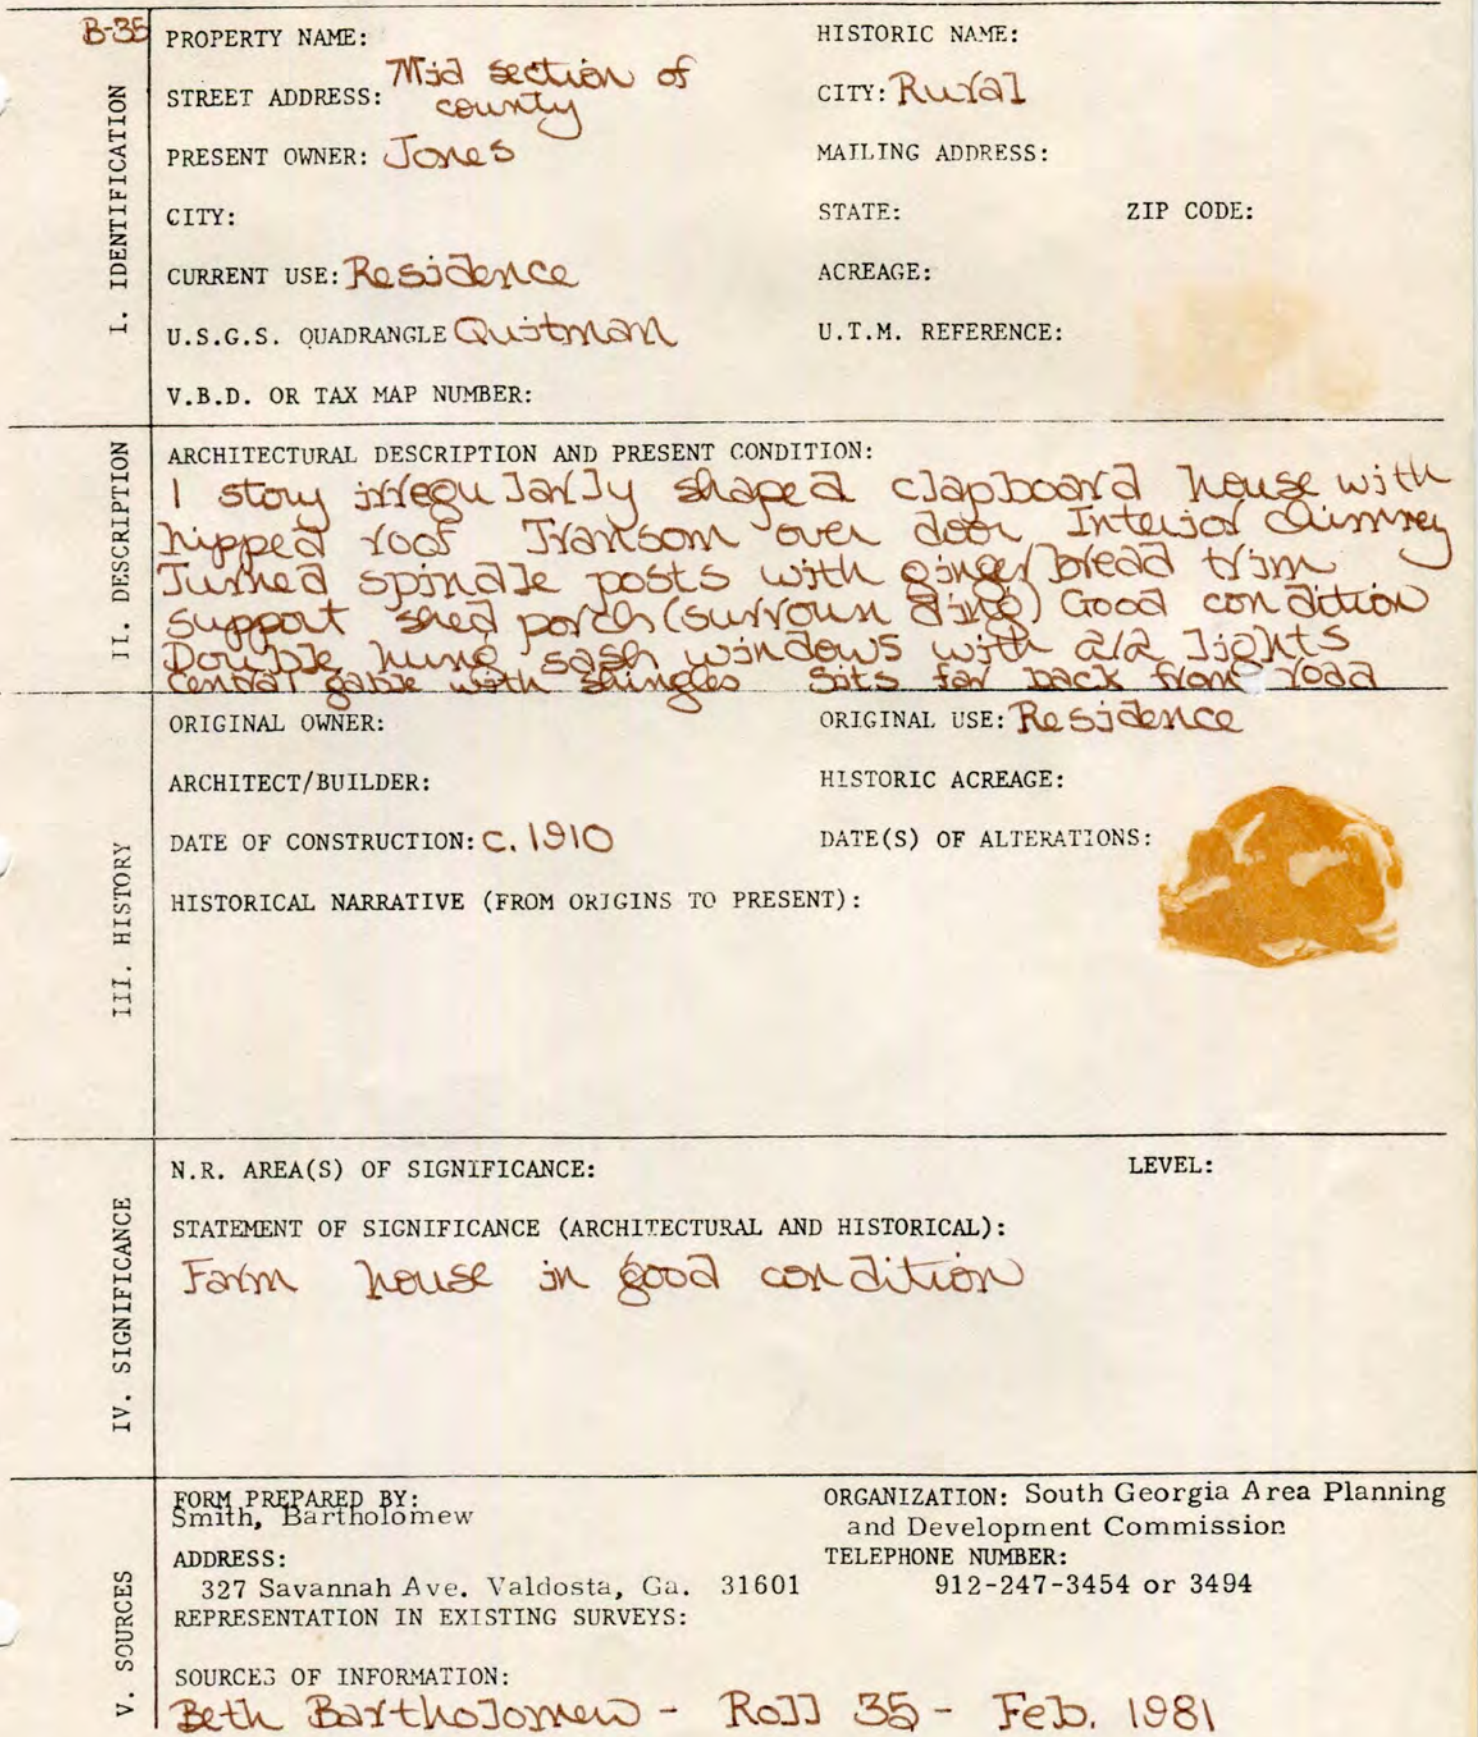 B-35
PROPERTY NAME: HISTORIC NAME:
STREET ADDRESS: Mid section of county CITY: Rural
PRESENT OWNER: Jones MAILING ADDRESS:
CITY: STATE: ZIP CODE:
CURRENT USE: Residence ACREAGE:
U.S.G.S. QUADRANGLE Quitman U.T.M. REFERENCE:
V.B.D. OR TAX MAP NUMBER:
I. IDENTIFICATION
ARCHITECTURAL DESCRIPTION AND PRESENT CONDITION:
1 story irregularly shaped clapboard house with
hipped roof Transom over door Interior Chimney
Turned spindle posts with gingerbread trim
support shed porch (surrounding) Good condition
Double hung sash windows with 2/2 lights
Central gable with shingles Sits far back from road
II. DESCRIPTION
ORIGINAL OWNER: ORIGINAL USE: Residence
ARCHITECT/BUILDER: HISTORIC ACREAGE:
DATE OF CONSTRUCTION: C. 1910 DATE(S) OF ALTERATIONS:
HISTORICAL NARRATIVE (FROM ORIGINS TO PRESENT):
III. HISTORY
N.R. AREA(S) OF SIGNIFICANCE: LEVEL:
STATEMENT OF SIGNIFICANCE (ARCHITECTURAL AND HISTORICAL):
Farm house in good condition
IV. SIGNIFICANCE
FORM PREPARED BY: ORGANIZATION: South Georgia Area Planning
Smith, Bartholomew and Development Commission
ADDRESS: TELEPHONE NUMBER:
327 Savannah Ave. Valdosta, Ga. 31601 912-247-3454 or 3494
REPRESENTATION IN EXISTING SURVEYS:
SOURCES OF INFORMATION:
Beth Bartholomew - Roll 35 - Feb. 1981
V. SOURCES